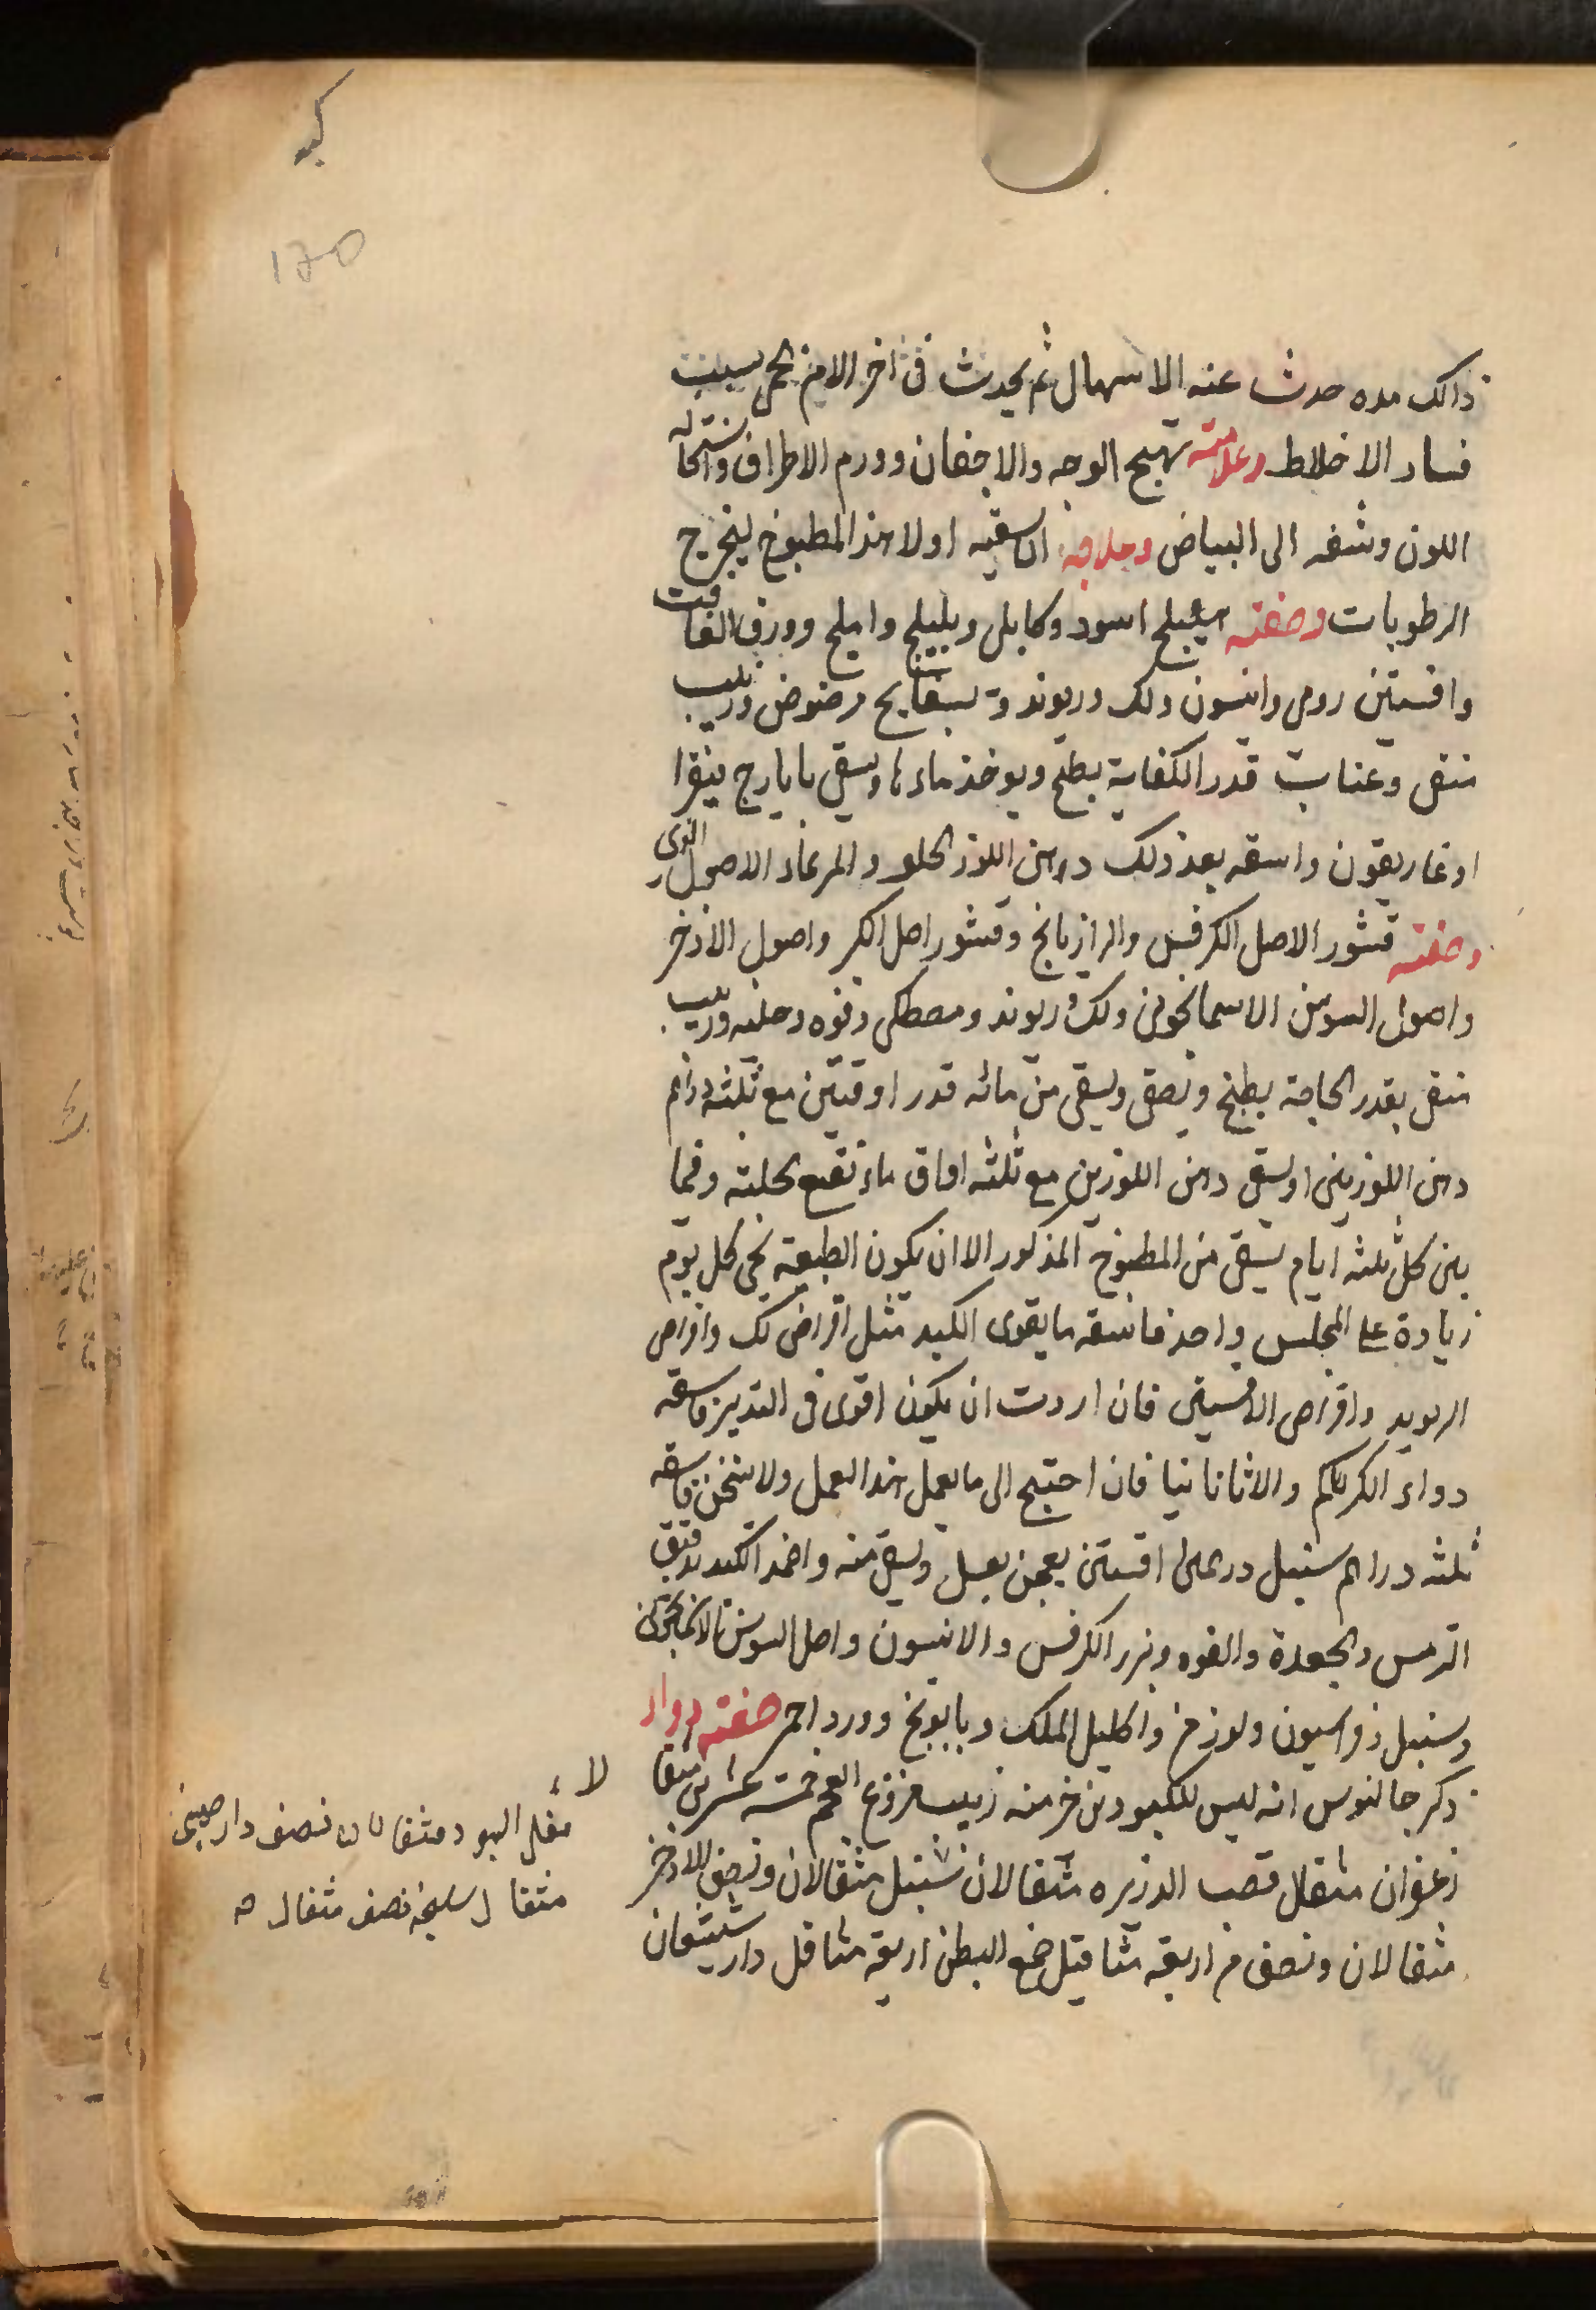 كبد
170
ذالك مده حدث عنه الاسهال ثم يحدث فى اخر الامر بسبب
فساد الاخلاط وعلامته تهيج الوجه والاجفان وورم الاطراف واستحاله
اللون وشفه الى البياض وعلاجه ان اسقيه اولا هذا المطبوخ ليخرج
الرطوبات وصفته هليلج اسود وكابلى وبليلج واملج وورق الغافت
وافسنتين رومى وانيسون ولك وريوند وبسفايج مرضوض وزبيب
منقى وعناب قدر الكفاية يطبخ ويوخذ ماءها ويسقى بايارج فيقرا
او غاريقون واسقه بعد ذلك دهن اللوز الحلو والمر بماء الاصول القوى
وصفته قشور الاصل الكرفس والرازيانج وقشور اصل الكبر واصول الاذخر
واصول السوسن الاسمانجونى ولك وريوند ومصطكى وفوه وحلبه وزبيب
منقى بقدر الحاجة يطبخ ويصفى ويسقى من مائه قدر اوقيتين مع ثلثه دراهم
دهن اللوزين او يسقى دهن اللوزين مع ثلثه اواق ماء نقيع بحلبته وفيما
بين كل ثلثه ايام يسقى من المطبوخ المذكور الا ان يكون الطبيعة تجى كل يوم
زيادة على المجلس واحد فاسقه ما يقوى الكبد مثل اقراص لك واقراص
الريويد واقراص الافسنتين فان اردت ان يكون اقوى فى التدبير فاسقه
دواء الكركم والاثاناسيا فان احتيج الى ما يعمل هذا العمل ولا يسخن فاسقه
ثلثه دراهم سنبل درهمى افسنتين يعجن بعسل ويسقى منه واضمد الكبد بدقيق
الترمس والجعدة والفوه وبزر الكرفس والانيسون واصل السوسن الاسمانجونى
وسنبل وفراسيون ولوز مر واكليل الملك وبابونج وورد احمر صفته دواء
ذكر جالنوس انه ليس للكبود من خير منه زبيب منزوع العجم خمسة عشرين مثقا
زعفران مثقال قصب الذريره مثقالان سنبل مثقالان ونصف الاذخر
مثقالان ونصف مر اربعة مثاقيل صمغ البطم اربعة مثاقيل دارشيشعان
لا
مقل اليهود مثقالان نصف دارصينى
مثقال سليخه نصف مثقال